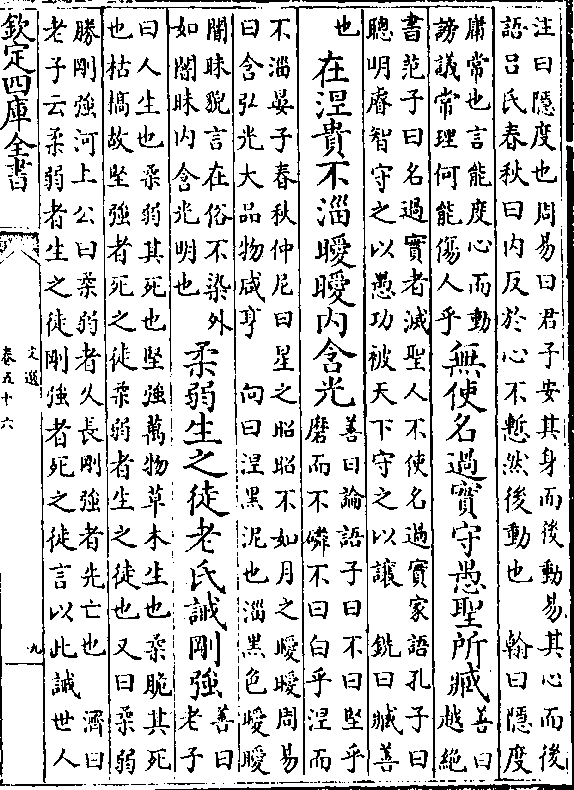 注曰隱度也周易曰君子安其身而後動易其心而後
語吕氏春秋曰内反於心不慙然後動也　翰曰隱度
庸常也言能度心而動
謗議常理何能傷人乎
無使名過實守愚聖所臧
善曰
越絶
書范子曰名過實者滅聖人不使名過實家語孔子曰
聰明睿智守之以愚功被天下守之以讓　銑曰臧善
也
在涅貴不淄曖曖内含光
善曰論語子曰不曰堅乎
磨而不磷不曰白乎涅而
不淄晏子春秋仲尼曰星之昭昭不如月之曖曖周易
曰含弘光大品物咸亨　向曰涅黑泥也淄黑色曖曖
闇昧貌言在俗不染外
如闇昧内含光明也
柔弱生之徒老氏誡剛強
善曰
老子
曰人生也柔弱其死也堅強萬物草木生也柔脆其死
也枯槁故堅強者死之徒柔弱者生之徒也又曰柔弱
勝剛強河上公曰柔弱者久長剛強者先亡也　濟曰
老子云柔弱者生之徒剛強者死之徒言以此誡世人
欽定四庫全書
文選
卷五十六
九